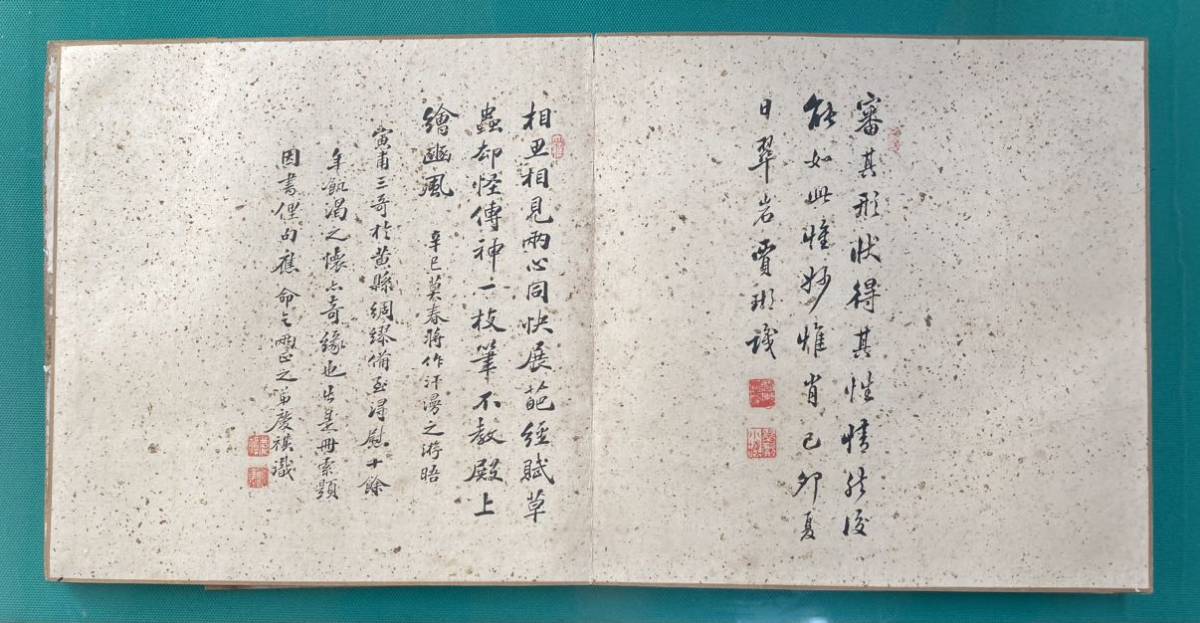 審其形狀得其性情然後
能如此惟妙惟肖己卯夏
日翠岩賈 識
相思相見兩心同快展葩經賦草
蟲却怪傳神一枝筆不教殿上
繪豳風 辛巳莫春將作汗漫之游晤
寅甫三哥於黃縣綢繆備至得慰十餘
年飢渴之懷亦奇緣也出是冊索題
因書俚句應命乞兩正之弟慶祺識